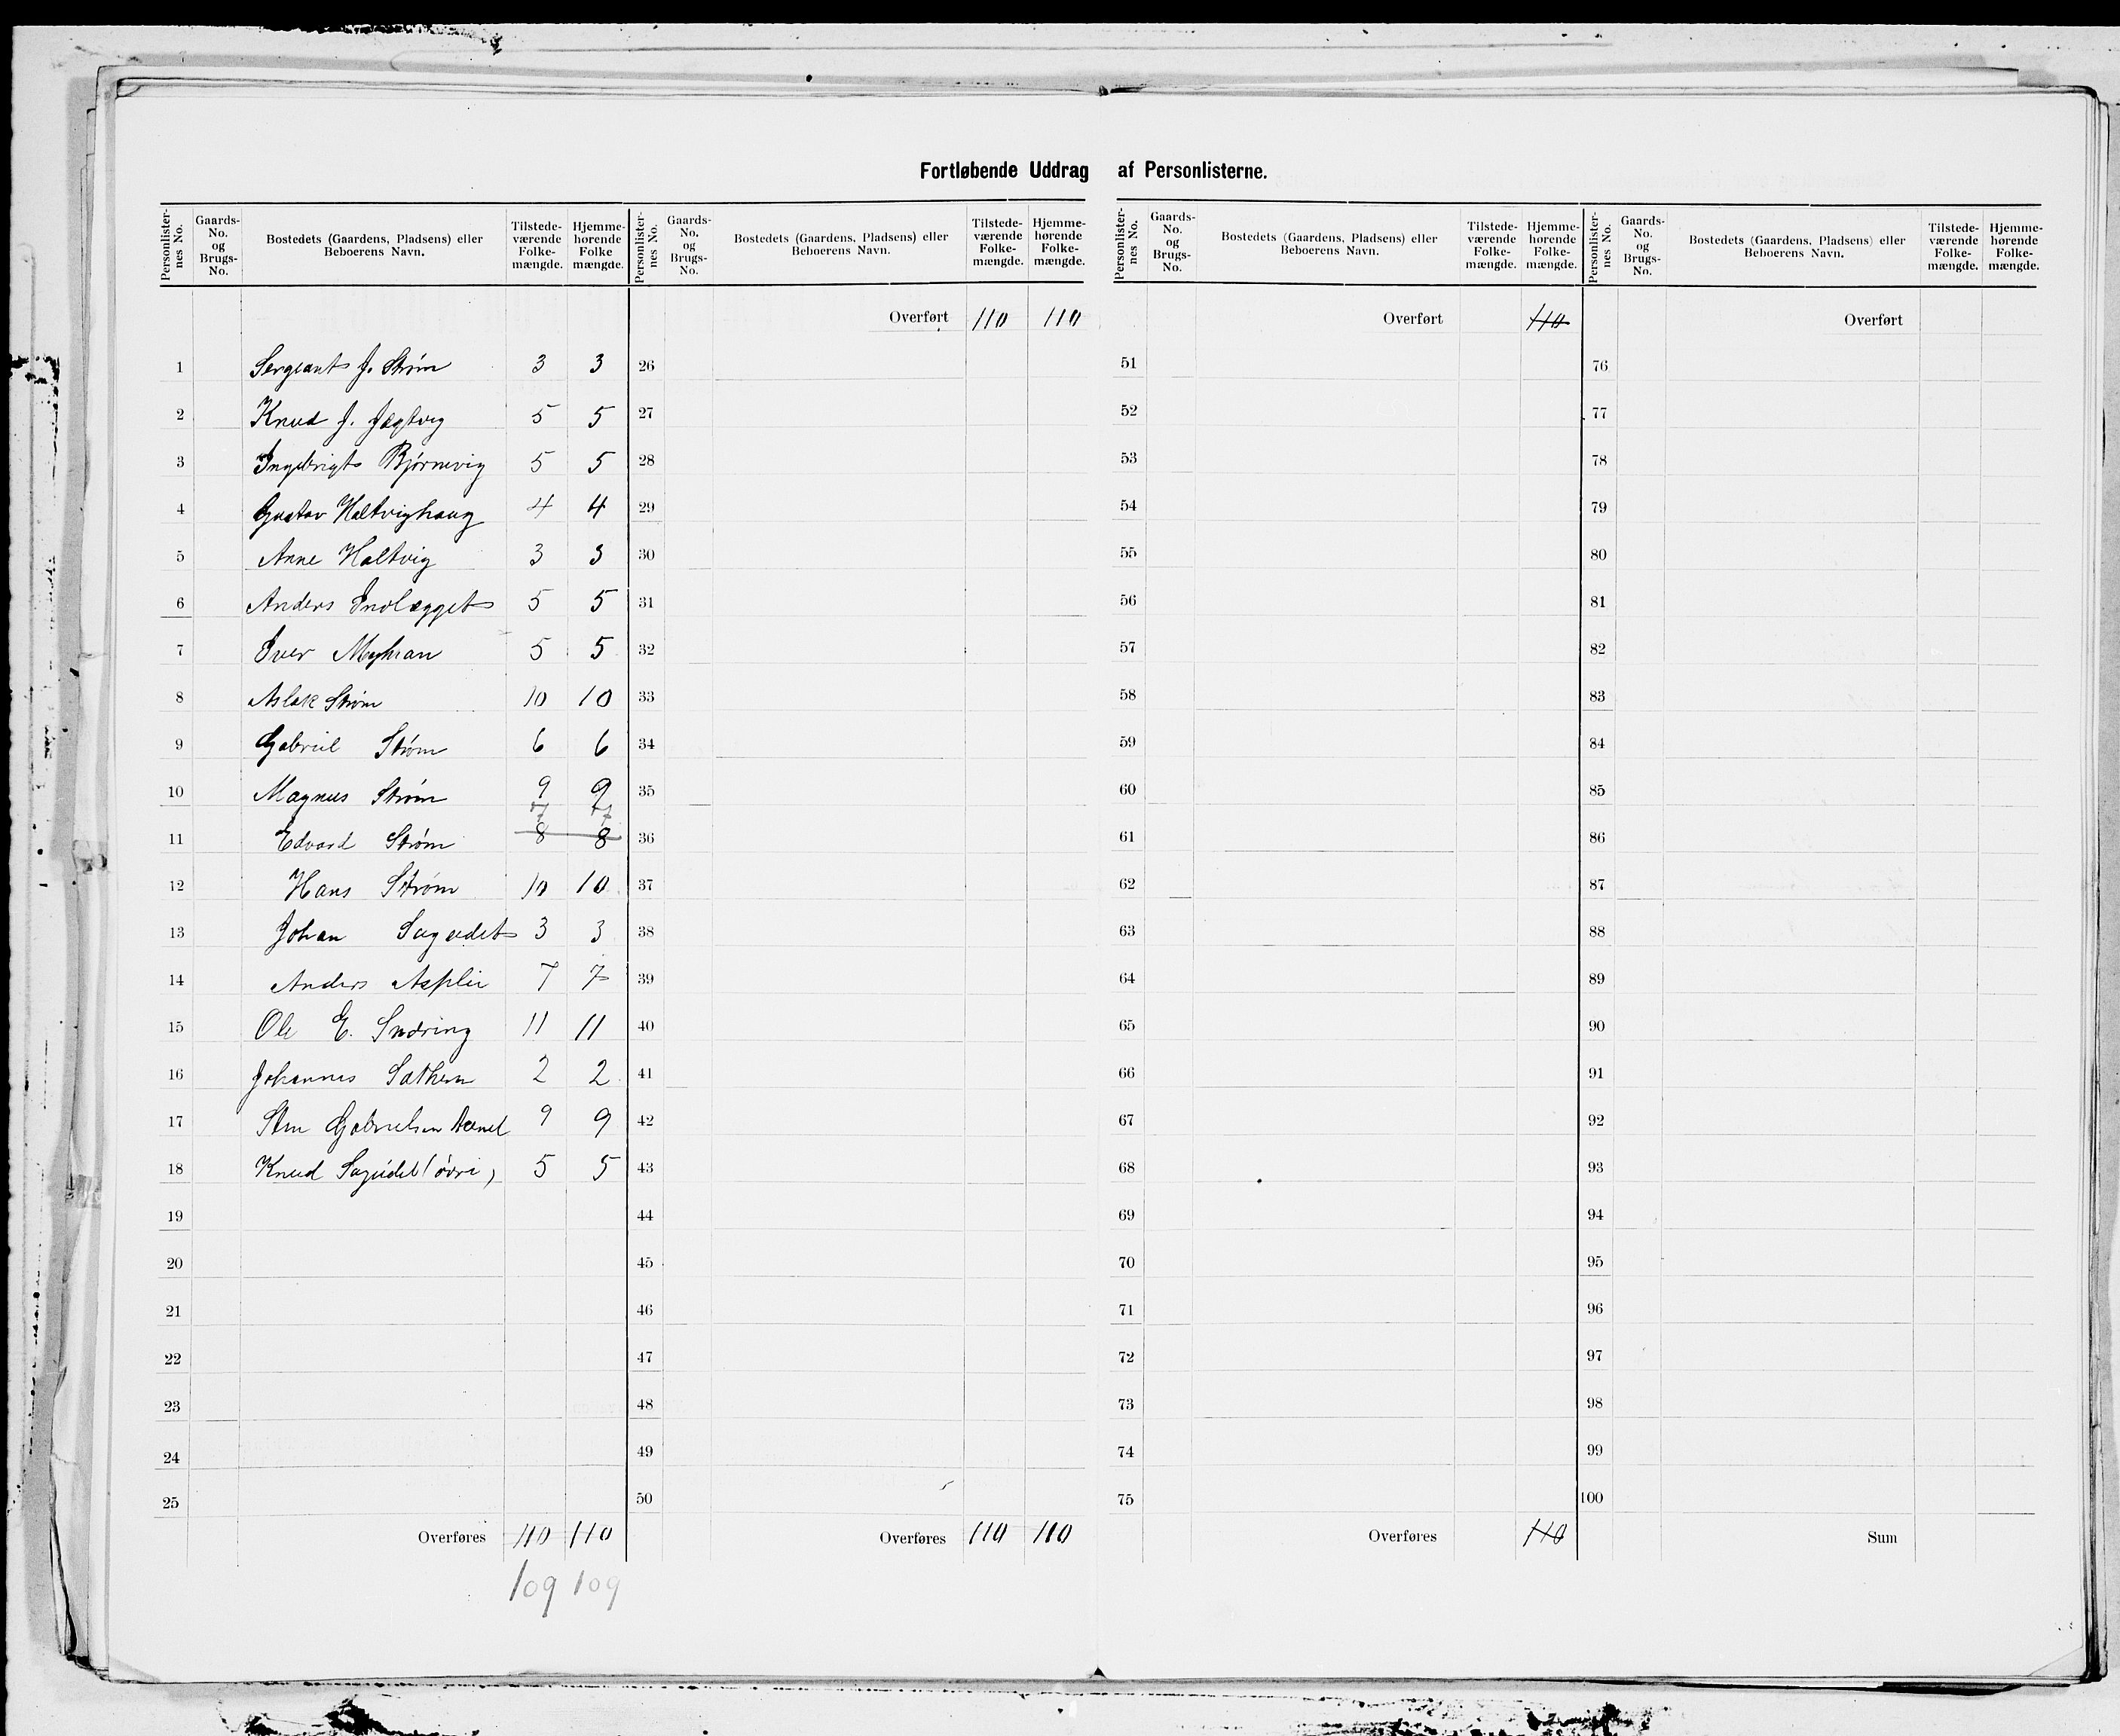 Fortløbende Uddrag af Personlisterne.
Personlister-nes No. | Gaards-No. og Brugs-No. | Bostedets (Gaardens, Pladsens) eller Beboerens Navn. | Tilstede-værende Folke-mængde. | Hjemme-hørende Folke mængde. | Personlister-nes No. | Gaards-No. og Brugs-No. | Bostedets (Gaardens, Pladsens) eller Beboerens Navn. | Tilstede-værende Folke-mængde. | Hjemme-hørende Folke-mængde. | Personlister-nes No. | Gaards-No. og Brugs-No. | Bostedets (Gaardens, Pladsens) eller Beboerens Navn. | Tilstede-værende Folke-mængde. | Hjemme-hørende Folke-mængde. | Personlister-nes No. | Gaards-No. og Brugs-No. | Bostedets (Gaardens, Pladsens) eller Beboerens Navn. | Tilstede-værende Folke-mængde. | Hjemme-hørende Folke-mængde.
Overført 110 110 Overført 110 Overført
1 Sergeant J. Strøm 3 3 26 51 76
2 Knud J. Jægtvig 5 5 27 52 77
3 Ingebrigt Bjørnevig 5 5 28 53 78
4 Gustav Holtvighaug 4 4 29 54 79
5 Anne Holtvig 3 3 30 55 80
6 Anders Indlægget 5 5 31 56 81
7 Iver 5 5 32 57 82
8 Aslak Strøm 10 10 33 58 83
9 Gabriel Strøm 6 6 34 59 84
10 Magnus Strøm 9 9 35 60 85
7 7
11 Edvard Strøm 8 8 36 61 86
12 Hans Strøm 10 10 37 62 87
13 Johan Sageidet 3 3 38 63 88
14 Anders Asplii 7 7 39 64 89
15 Ole E. Snöring 11 11 40 65 90
16 Johannes Sæthern 2 2 41 66 91
17 Gabrielsen 9 9 42 67 92
18 Knud Sageidet (övre) 5 5 43 68 93
19 44 69 94
20 45 70 95
21 46 71 96
22 47 72 97
23 48 73 98
24 49 74 99
25 50 75 100
Overføres 110 110 Overføres 110 110 Overføres 110 Sum
109 109